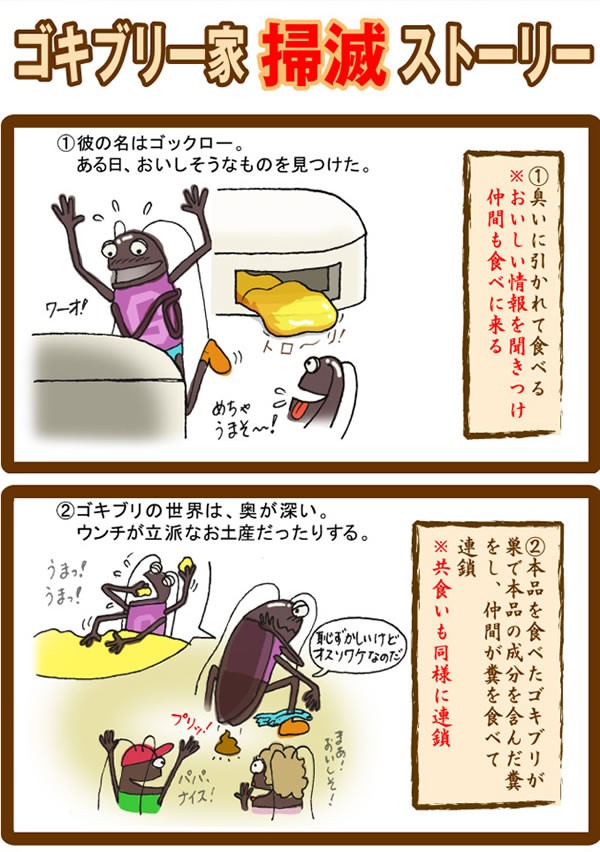 ゴキブリ一家 掃滅 ストーリー
①彼の名はゴックロー。
ある日、おいしそうなものを見つけた。
ワーオ!
トロ〜リ!
めちゃ
うまそ〜!
①臭いに引かれて食べる
※おいしい情報を聞きつけ
仲間も食べに来る
②ゴキブリの世界は、奥が深い。
ウンチが立派なお土産だったりする。
うまっ!
うまっ!
恥ずかしいけど
オスソワケなのだ
プリッ!
パパ、
ナイス!
まあ!
おいしそ!
②本品を食べたゴキブリが
巣で本品の成分を含んだ糞
をし、仲間が糞を食べて
連鎖
※共食いも同様に連鎖